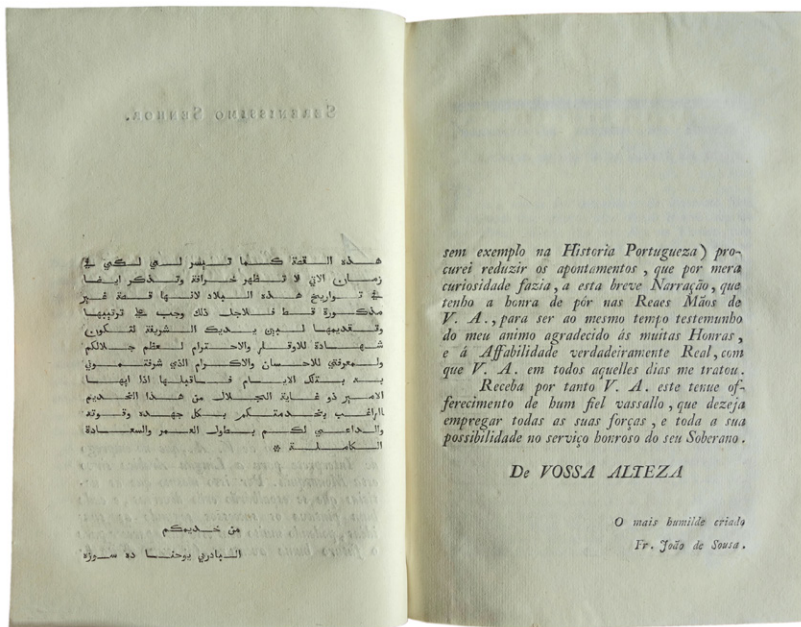 SERENISSIMO SENHOR.
هذه القصة كما تيسر لي لكي في
زمان الاتي لا تظهر خرافة وتذكر ايضا
في تواريخ هذه البلاد لانها قصة غير
مذكورة قط فلاجل ذلك وجب على ترتيبها
وتقديمها ليدي الشريفة لتكون
شهادة للاوقار والاحترام لعظم جلالكم
ولمعرفتي للاحسان والاكرام الذي شرفتموني
به بتلك الايام فاقبلها اذا ايها
الامير ذو غاية التجلال من هذا الخديم
الراغب بخدمتكم بكل جهده وقوته
والداعي لكم بطول العمر والسعادة
الكاملة *
من خديمكم
البادري يوحنا ده سوزه
sem exemplo na Historia Portugueza) pro-
curei reduzir os apontamentos, que por mera
curiosidade fazia, a esta breve Narração, que
tenho a honra de pôr nas Reaes Mãos de
V. A., para ser ao mesmo tempo testemunho
do meu animo agradecido ás muitas Honras,
e á Affabilidade verdadeiramente Real, com
que V. A. em todos aquelles dias me tratou.
Receba por tanto V. A. este tenue of-
ferecimento de hum fiel vassallo, que dezeja
empregar todas as suas forças, e toda a sua
possibilidade no serviço honroso do seu Soberano.
De VOSSA ALTEZA
O mais humilde criado
Fr. João de Sousa.